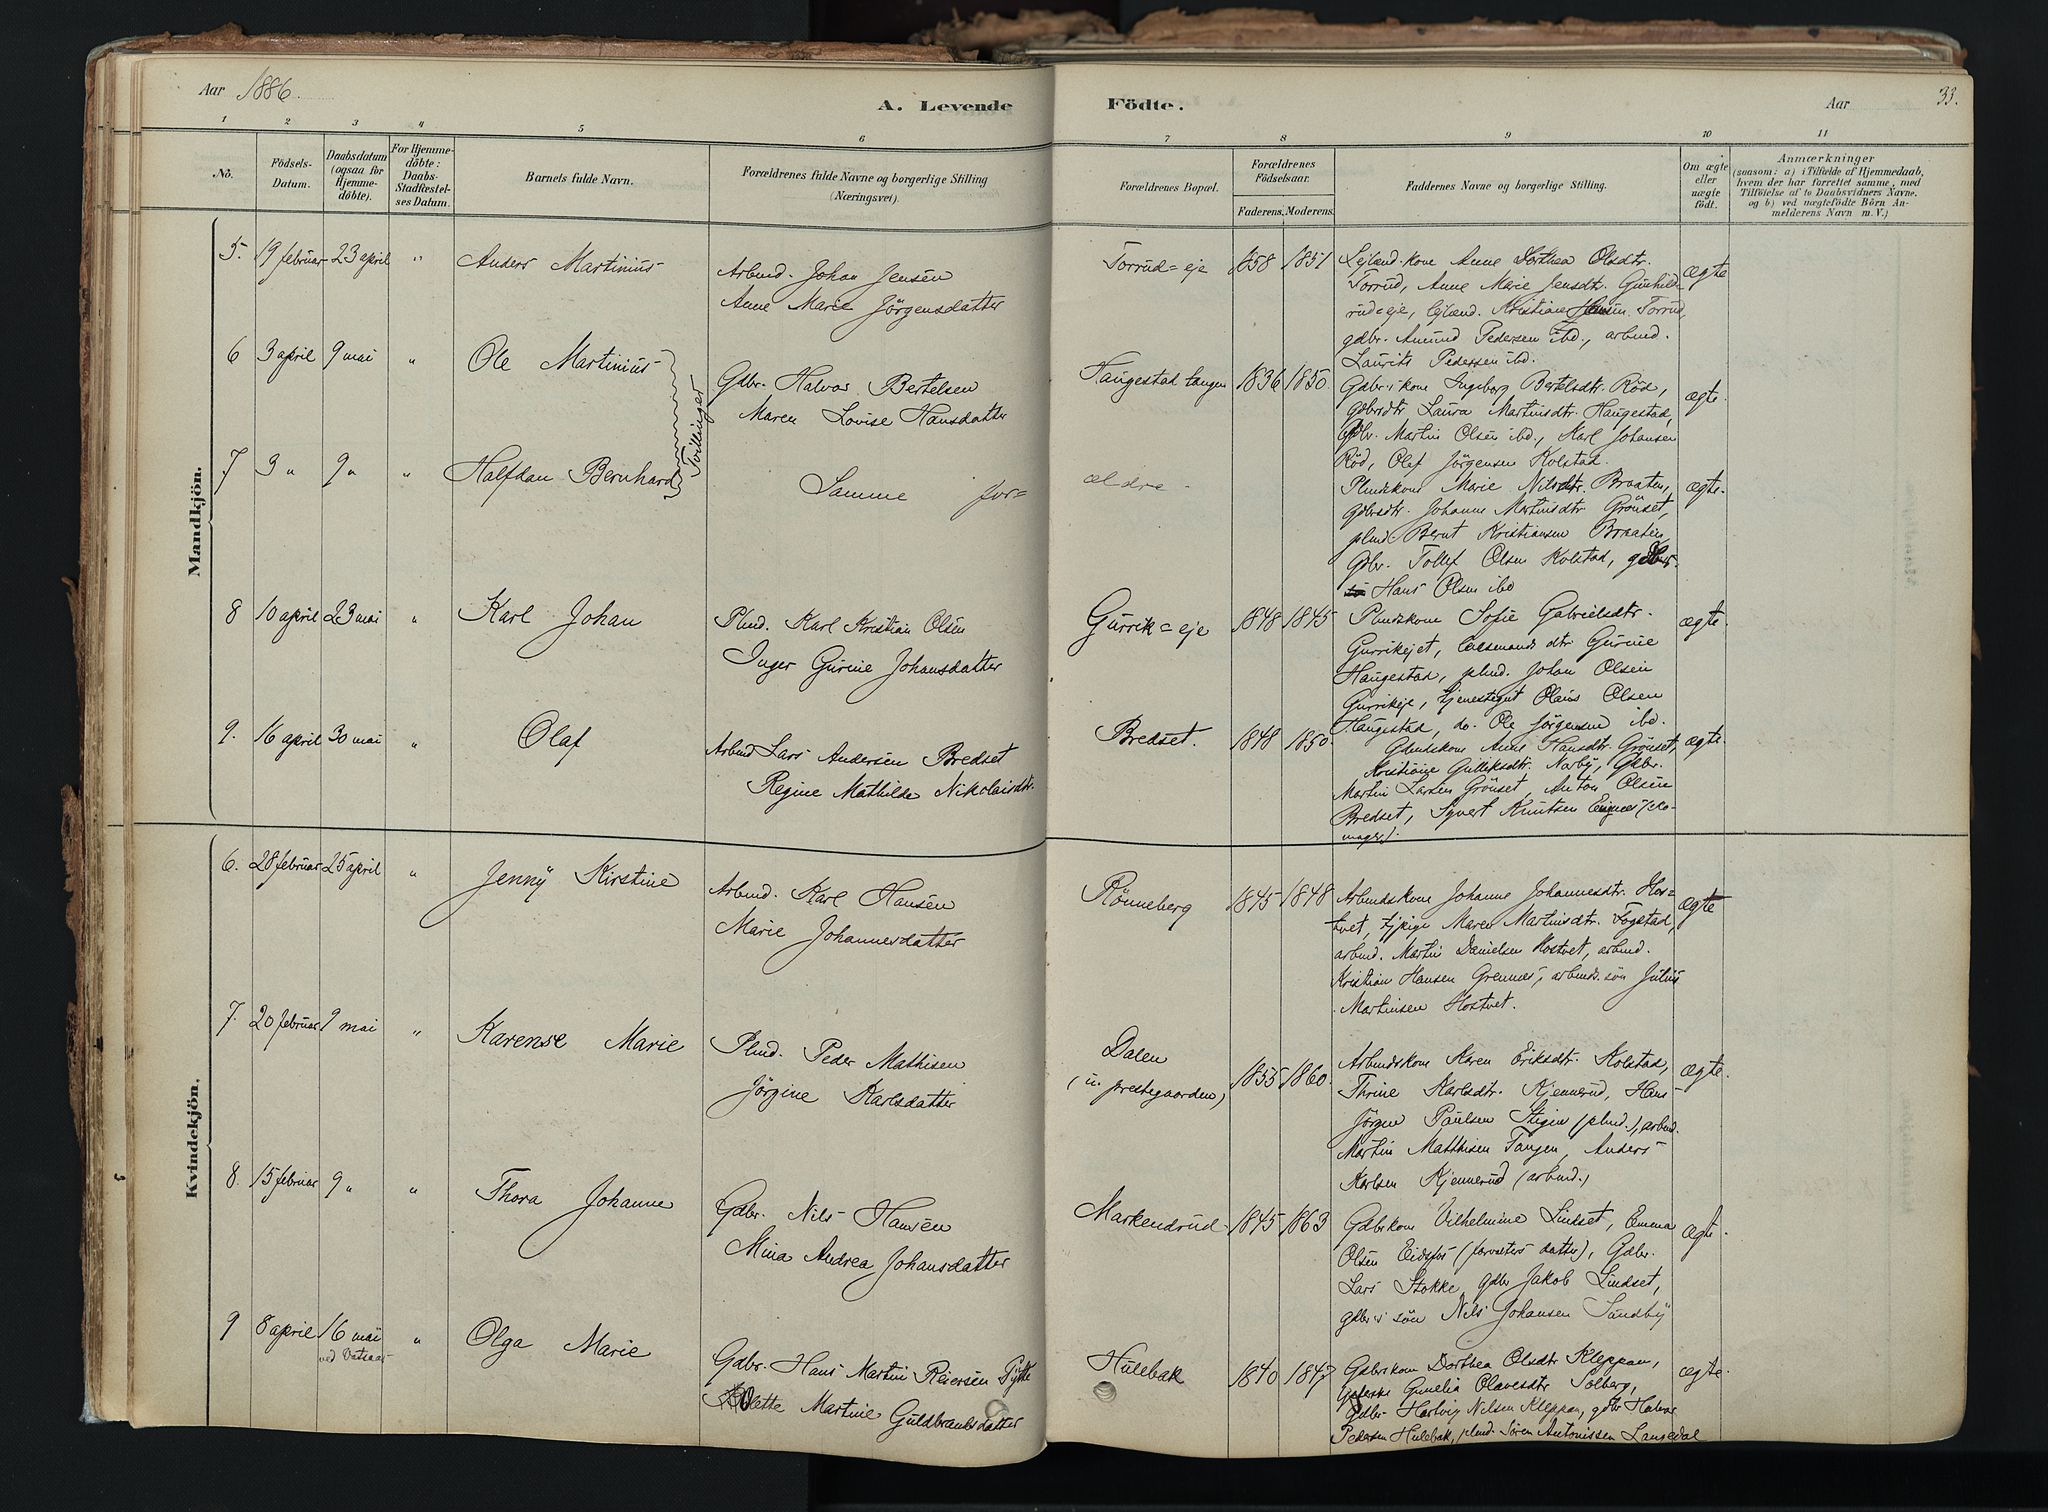 Aar 1886.
A. Levende Födte.
Aar
33.
1 2 3 4 5 6 7 8 9 10 11
No.
Födsels-
Datum.
Daabsdatum
(ogsaa for
Hjemme-
döbte).
For Hjemme-
döbte:
Daabs-
Stadfæstel-
ses Datum.
Barnets fulde Navn.
Forældrenes fulde Navne og borgerlige Stilling
(Næringsvei).
Forældrenes Bopæl.
Forældrenes
Födselsaar.
Faderens. Moderens.
Faddernes Navne og borgerlige Stilling.
Om ægte
eller
uægte
födt.
Anmærkninger
(saasom: a) i Tilfælde af Hjemmedaab,
hvem der har forrettet samme, med
Tilföielse af to Daabsvidners Navne.
og b) ved uægtefödte Börn An-
melderens Navn m. V.)
Mandkjön.
5. 19 februar 23 april " Anders Martinius
Arbmd. Johan Jensen
Anne Marie Jörgensdatter
Torrud=eje 1858 1851
Lejlænd. kone Anne Dorthea Olsdtr.
Torrud, Anne Marie Jensdtr. Gunhild-
rud=eje, lejlænd. Kristian Jensen Torrud,
gdbr. Amund Pedersen ibd., arbmd.
Laurits Pedersen ibd.
ægte
6 3 april 9 mai " Ole Martinius
Tvillinger
Gdbr. Halvor Bertelsen
Maren Lovise Hansdatter
Haugestad tangen 1836 1850.
Gdbr.s kone Ingeborg Bertelsdtr. Röd,
gdbrsdtr Laura Martinsdtr. Haugestad,
Gdbr. Martin Olsen ibd., Karl Johansen
Röd, Olef Jörgensen Kolstad.
ægte.
7 3 " 9 " " Halfdan Bernhard
Samme for=
ældre.
Plmdskone Marie Nilsdtr. Braaten,
Gdbrsdtr. Johanne Martinsdtr Grönset,
plmd. Bernt Kristiansen Braaten
Gdbr. Tollef Olsen Kolstad, gdbr.
Hans Olsen ibd
ægte.
8 10 april 23 mai " Karl Johan
Plmd. Karl Kristian Olsen
Inger Gurine Johansdatter
Gurrik=eje 1848 1845
Plmdskone Sofie Gabrielsdtr.
Gurrikejet, dtr Gurine
Haugestad, plmd. Johan Olsen
Gurrikeje, tjenestegut Olaus Olsen
Haugestad, do. Ole Jörgensen ibd.
ægte.
9. 16 april 30 mai " Olaf
Arbmd Lars Andersen Bredset
Regine Mathilde Nikolaisdtr.
Bredset. 1848 1850.
Gdmdskone Anne Hansdtr. Grönset,
Kristiane Gulliksdtr. Narby, Gdbr.
Martin Larsen Grönset, Anton Olsen
Bredset, Syvert Knutsen (sko-
mager).
ægte.
Kvindekjön.
6. 28 februar 25 april " Jenny Kirstine
Arbmd. Karl Hansen
Marie Johannesdatter
Rönneberg 1845 1848
Arbmdskone Johanne Johannesdtr. Hos=
tvet, tj.pige Maren Martinsdtr. Fogstad,
arbmd. Martin Danielsen Hostvet, arbmd.
Kristian Hansen Grennes, arbmds. sön Julius
Martinsen Hostvet.
ægte
7. 20 februar 9 mai " Karense Marie
Plmd. Peder Mathisen
Jörgine Karlsdatter
Dalen
(u. prestegaarden)
1855 1860.
Arbmdskone Karen Eriksdtr. Kolstad,
Thrine Karlsdtr. Kjennerud, Hans
Jörgen Paulsen Stigen (plmd.), arbmd.
Martin Mathisen Tangen, Anders
Karlsen Kjennerud (arbmd.)
ægte.
8. 15 februar 9 " " Thora Johanne
Gdbr. Nils Hansen
Mina Andrea Johansdatter
Markendrud 1845 1863
Gdbrkone Vilhelmine Lindset, Emma
Olsen Eidsfos (forvalters datter), Gdbr.
Lars Stokke, gdbr Jakob Lindset,
gdbr.s sön Nils Johansen Sundby
ægte.
9 8 april 16 mai
ved Vatsaas
" Olga Marie
Gdbr. Hans Martin Reiersen Pytte
Martine Guldbrandsdatter
Hulebak 1840 1847
Gdbrskone Dorthea Olsdtr Kleppan,
Gunelia Olavesdtr Solberg,
Gdbr Hartvig Nilsen Kleppan, gdbr Halvor
Pedersen Hulebak, plmd. Sören Antonissen Langedal
ægte.